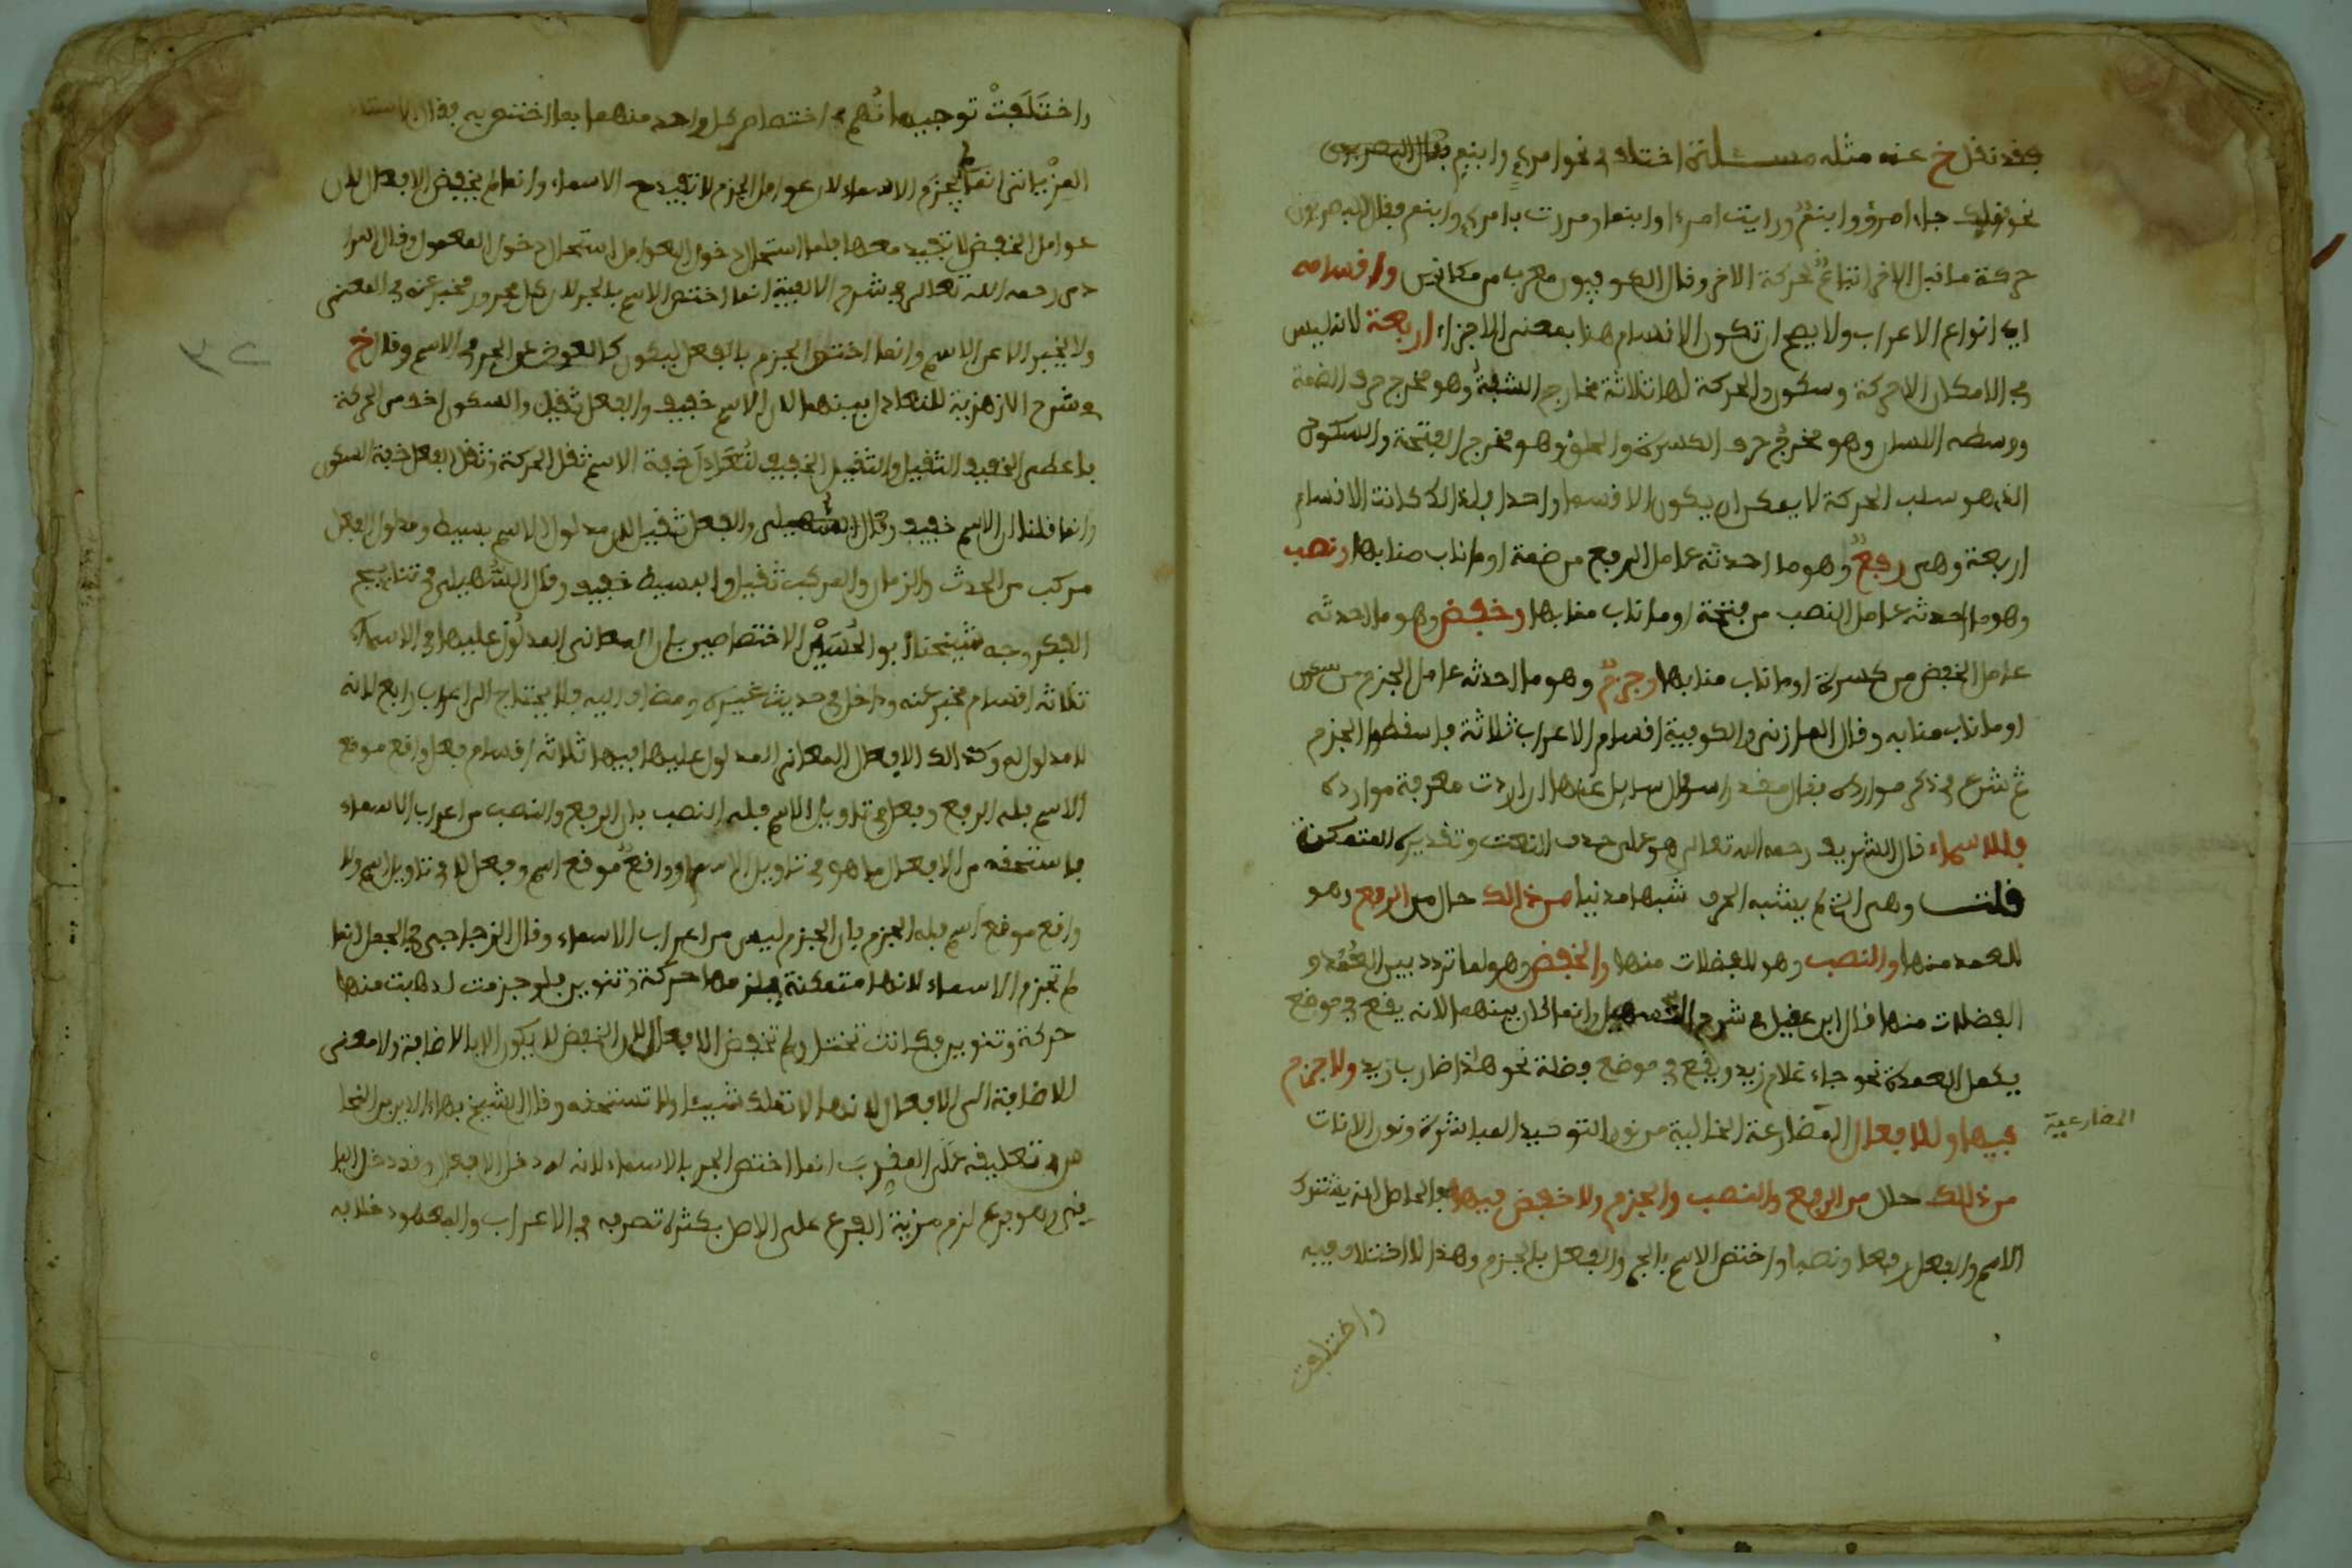 فقد نقل خ عنه مثله مسئلة اختلف في نحو امرئ وابنم فقال البصريون
نحو قولك جاء امرؤ وابنم ورايت امرءا وابنما ومررت بامرئ وابنم فقال البصريون
حركة ما قبل الاخر اتباع لحركة الاخر وقال الكوفيون معرب من مكانين واقسامه
اي انواع الاعراب ولا يصح ان تكون الاقسام هنا بمعنى الاجزاء اربعة لانه ليس
في الامكان الا حركة وسكون والحركة لها ثلاثة مخارج الشفة وهو مخرج حرف الضمة
ووسط اللسان وهو مخرج حرف الكسرة والحلق وهو مخرج الفتحة والسكون
الذي هو سلب الحركة لا يمكن ان يكون الا قسما واحدا فلذالك كانت الاقسام
اربعة وهي رفع وهو ما احدثه عامل الرفع من ضمة او ما ناب منابها ونصب
وهو ما احدثه عامل النصب من فتحة او ما ناب منابها وخفض وهو ما احدثه
عامل الخفض من كسرة او ما ناب منابها وجزم وهو ما احدثه عامل الجزم من سكون
او ما ناب منابه وقال المازني والكوفية اقسام الاعراب ثلاثة فاسقطوا الجزم
ثم شرع في ذكر موارده فقال مقدرا سؤال سايل عنها ان اردت معرفة موارده
فللاسماء قال الشريف رحمه الله تعالى هو على حذف النعت وتقديره المتمكنة
قلت وهي التي لم يشبه الحرف شبها مدنيا من ذالك حال من الرفع وهو
للعمد منها والنصب وهو للفضلات منها والخفض وهو لما تردد بين العمد و
الفضلات منها قال ابن عقيل في شرح التسهيل وانما كان بينهما لانه يقع في موضع
يكمل العمدة نحو جاء غلام زيد ويقع في موضع فضلة نحو هذا ضارب زيد ولا جزم
فيها وللافعال المضارعة الخالية من نون التوكيد المباشرة ونون الاناث
المضارعية
من ذلك حال من الرفع والنصب والجزم ولا خفض فيها فالحاصل انه يشترك
الاسم والفعل رفعا ونصبا واختص الاسم بالجر والفعل بالجزم وهذا لا اختلاف فيه
واختلفت
واختلفت توجيهاتهم في اختصاص كل واحد منهما بما اختص به فقال الاستاذ
انما لم تجزم الاسماء لان عوامل الجزم لا تفيد مع الاسماء وانما لم تخفض الافعال لان
عوامل الخفض لا تفيد معها فلما استحال دخول العوامل استحال دخول المعمول وقال المرا
دي رحمه الله تعالى في شرح الالفية انما اختص الاسم بالجر لان كل مجرور مخبر عنه في المعنى
ولا يخبر الا عن الاسم وانما اختص الجزم بالفعل ليكون كالعوض عن الجر في الاسم وقال خ
في شرح الازهرية للتعادل بينهما لان الاسم خفيف والفعل ثقيل والسكون اخف من الحركة
فاعطى الخفيف الثقيل والثقيل الخفيف لتعادل خفة الاسم ثقل الحركة وثقل الفعل خفة السكون
وانما قلنا ان الاسم خفيف والفعل ثقيل لان مدلول الاسم بسيط ومدلول الفعل
مركب من الحدث والزمان والمركب ثقيل والبسيط خفيف وقال السهيلي في نتايج
الفكر وجه شيخنا ابو الحسين الاختصاصين بان المعاني المدلول عليها في الاسماء
ثلاثة اقسام مخبر عنه وداخل في حديث غيره ومضاف اليه فلا يحتاج الى اعراب رابع لانه
لا مدلول له وكذالك الافعال المعاني المدلول عليها فيها ثلاثة اقسام فعل واقع موقع
الاسم فله الرفع وفعل في تاويل الاسم فله النصب بان الرفع والنصب من اعراب الاسماء
فاستحقه من الافعال ما هو في تاويل الاسم او واقع موقع اسم وفعل لا في تاويل اسم ولا
واقع موقع اسم فله الجزم بان الجزم ليس من اعراب الاسماء وقال الزجاجي في الجمل انما
لم تجزم الاسماء لانها متمكنة يلزمها حركة وتنوين فلو جزمت لذهبت منها
حركة وتنوين فكانت تختل ولم تخفض الافعال لان الخفض لا يكون الا بالاضافة ولا معنى
للاضافة الى الافعال لانها لا تملك شيئا ولا تستحقه وقال الشيخ بهاء الدين بن النحا
س في تعليقه على المقرب انما اختص الجر بالاسماء لانه لو دخل الافعال وقد دخل البا
قي وهو فرع لزم مزية الفرع على الاصل بكثرة تصرفه في الاعراب والمعهود خلافه